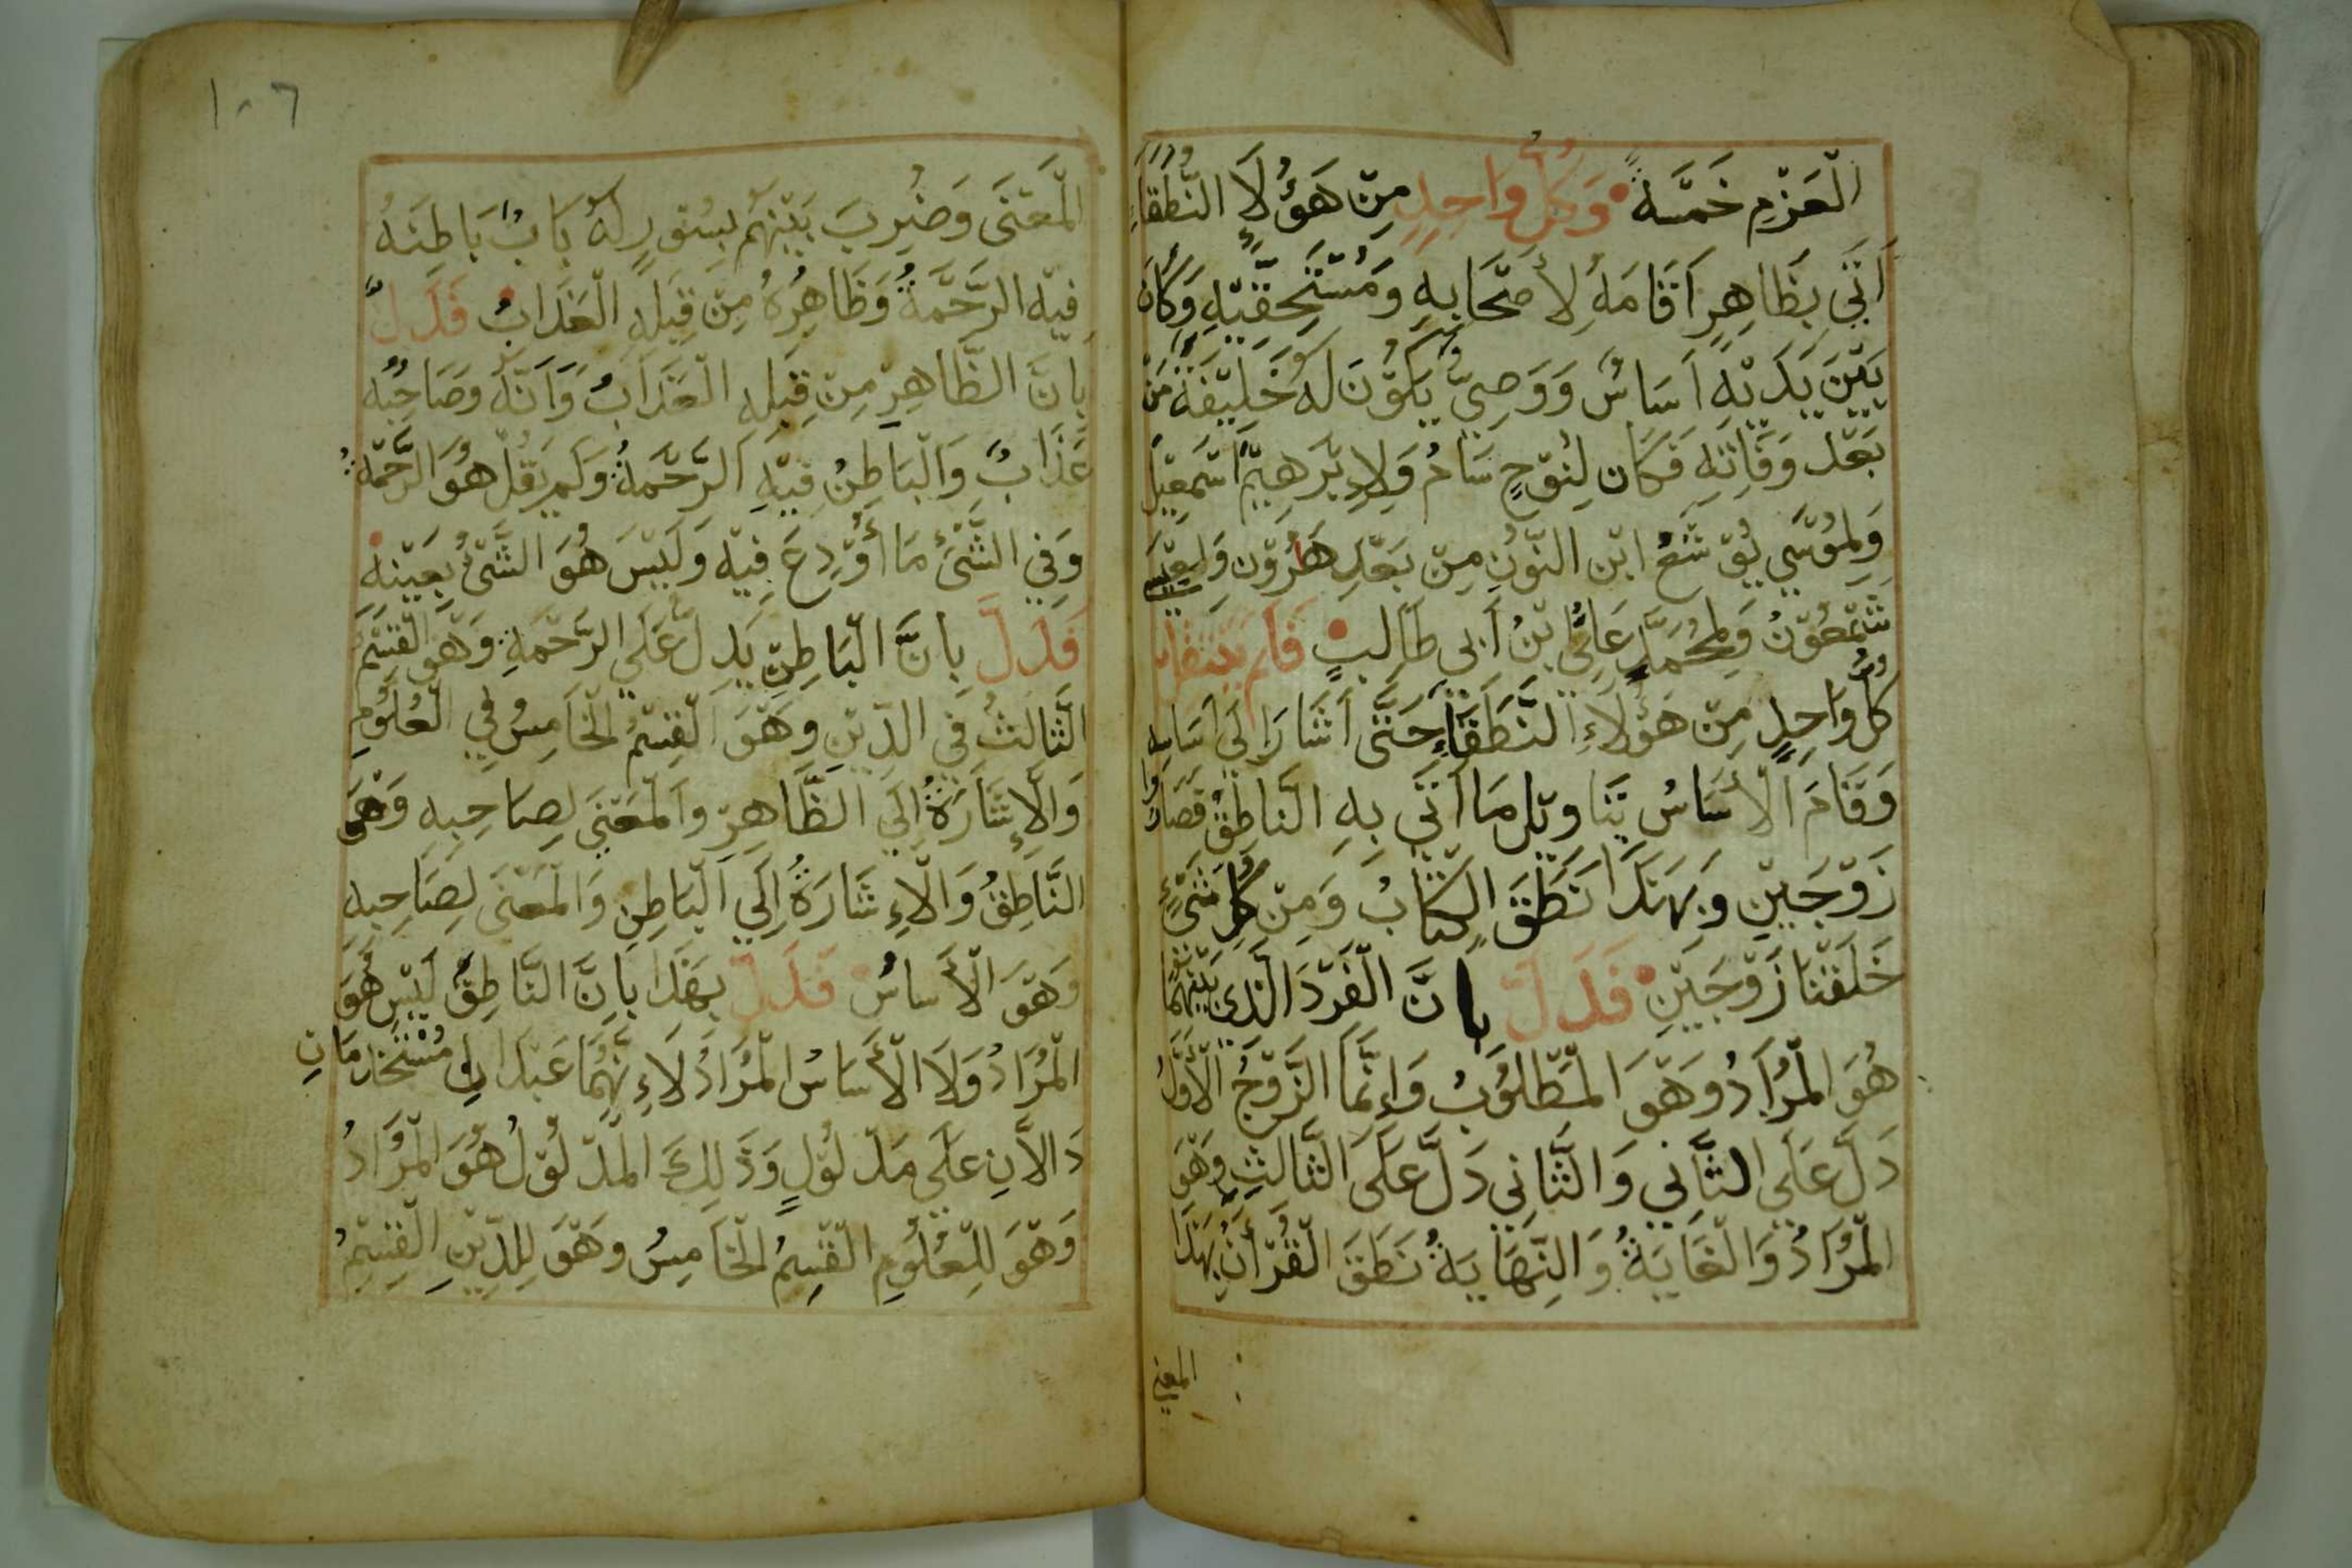 الْعَزْمِ خَمْسَةً وَكُلُّ وَاحِدٍ مِنْ هَؤُلَاءِ النُّطَقَاءِ
أَتَى بِظَاهِرٍ أَقَامَهُ لِأَصْحَابِهِ وَمُسْتَحِقِّيْهِ وَكَانَ
بَيْنَ يَدَيْهِ أَسَاسٌ وَوَصِيٌّ يَكُوْنَ لَهُ خَلِيْفَةً مِنْ
بَعْدِ وَفَاتِهِ فَكَان لِنُوْحٍ سَامُ وَلِإِبْرَهِيْمَ اسْمَعِيْلُ
وَلِمُوْسَي يُوْشَعُ ابْن النُّوْنِ مِنْ بَعْدِ هَرُوْن وَلِعِيْسَى
شَمْعُوْنُ وَلِمُحَمَّدٍ عَلِيُّ بْنُ أَبِي طَالِبٍ فَلَم
كُلُّ وَاحِدٍ مِنْ هَؤُلَاءِ النُّطَقَاءِ حَتَّى اَشَارَ إِلَى اَسَاسِه
وَقَامَ الْأَسَاسُ بِتَاوِيْلِ مَا اَتَى بِهِ النَّاطِقُ فَصَارُوا
زَوْجَيْنِ وَبِهَذَا نَطَقَ الْكِتَابُ وَمِنْ كُلِّ شَيْءٍ
خَلَقْنَا زَوْجَيْنِ فَدَلَّ بِاَنَّ الْفَرْدَ الَّذِي بَيْنَهُمَا
هُوَ الْمُرَادُ وَهُوَ الْمَطْلُوْبُ وَإِنَّمَا الزَّوْجُ الْأَوَّلُ
دَلَّ عَلَى الثَّانِي وَالثَّانِي دَلَّ عَلَى الثَّالِثِ وَهُوَ
الْمُرَادُ وَالْغَايَةُ وَالنِّهَايَةُ نَطَقَ الْقُرْأَنُ بِهَذَا
المعني
١٠٦
الْمَعْنَى وَضُرِبَ بَيْنَهُمْ بِسُوْرٍ لَهُ بَابٌ بَاطِنُهُ
فِيْهِ الرَّحْمَةُ وَظَاهِرُهُ مِنْ قِبَلِهِ الْعَذَابُ فَدَلَّ
بِاَنَّ الظَّاهِرَ مِنْ قِبَلِهِ الْعَذَابُ وَاَنَّهُ وَصَاحِبُه
عَذَابٌ وَالْبَاطِنُ فِيْهِ الرَّحْمَةُ وَلَمْ يَقُلْ هُوَ الرَّحْمَةُ
وَفِي الشَّيْءِ مَا أُوْدِعَ فِيْهِ وَلَيْسَ هُوَ الشَّيْءُ بِعَيْنِهِ
فَدَلَّ بِاَنَّ الْبَاطِنَ يَدِلُّ عَلَي الرَّحْمَةِ وَهُوَ الْقِسْمُ
الثَّالِثُ فِي الدِّيْنِ وَهُوَ الْقِسْمُ الْخَامِسُ فِي الْعُلُوْمِ
وَالْإِشَارَةُ إِلَي الظَّاهِرِ وَالْمَعْنَى لِصَاحِبِهِ وَهُوَ
النَّاطِقُ وَالْإِشَارَةُ إِلَي الْبَاطِنِ وَالْمَعْنَى لِصَاحِبِهِ
وَهُوَ الْأَسَاسُ فَدَلَّ بِهَذَا بِاَنَّ النَّاطِقَ لَيْسَ هُوَ
الْمُرَادُ وَلَا الْأَسَاسُ الْمُرَادُ لِإِنَّهُمَا عَبْدَانِ مُسْتَخْدَمَانِ
دَالَّانِ عَلَى مَدْلُوْلٍ وَذَلِكَ الْمَدْلُوْلُ هُوَ الْمُرَادُ
وَهُوَ لِلْعُلُوْمِ الْقِسْمُ الْخَامِسُ وَهُوَ لِلدِّيْنِ الْقِسْمُ